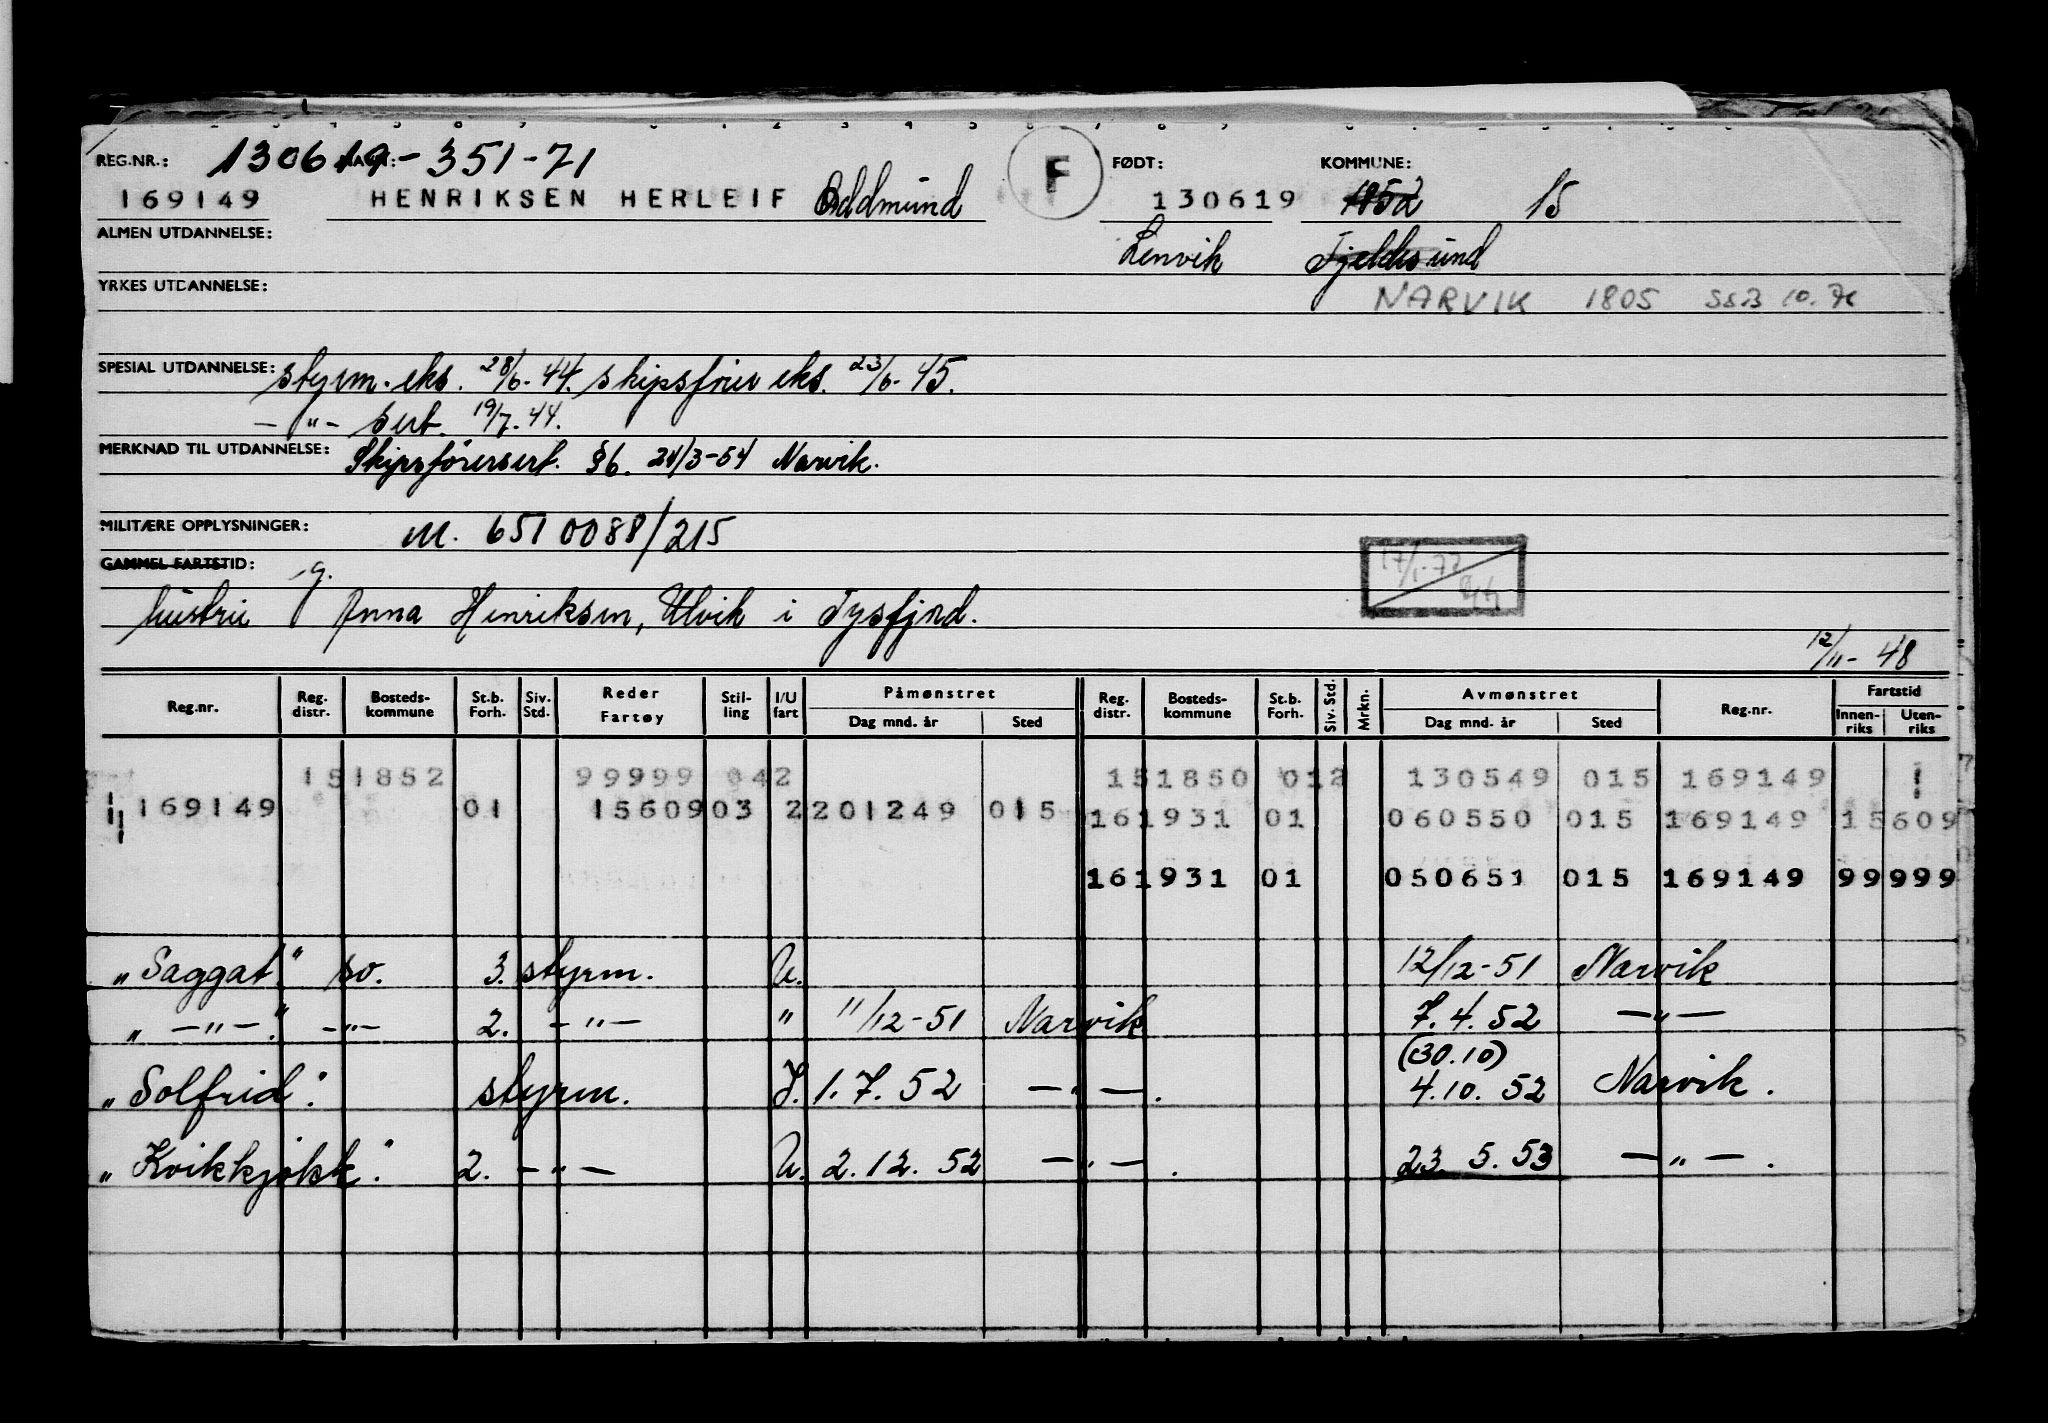 REG.NR.: 130619-351-71 F FØDT: KOMMUNE:
169149 HENRIKSEN HERLEIF Oddmund 130619 1852 15
ALMEN UTDANNELSE: Lenvik Fjeldsund
YRKES UTDANNELSE: NARVIK 1805 SSB 10.
SPESIAL UTDANNELSE: styrm. eks. 28/6-44. skipsfører eks. 23/6-45.
— " — sert. 19/7.44.
MERKNAD TIL UTDANNELSE: Skipsførersert. §6. 24/3-54 Narvik.
MILITÆRE OPPLYSNINGER: M. 6510088/215
GAMMEL FARTSTID: g. 17/1-72
hustru Anna Henriksen, Ulvik i Tysfjord.
12/11-48
Reg.nr. Reg. distr. Bosteds-kommune St.b. Forh. Siv. Std. Reder Fartøy Stil-ling I/U fart Påmønstret Dag mnd. år Sted Reg. distr. Bosteds-kommune St.b. Forh. Siv. Std. Mrkn. Avmønstret Dag mnd. år Sted Reg.nr. Fartstid Innen-riks Uten-riks
151852 99999 042 151850 012 130549 015 169149
169149 01 15609 03 2 201249 015 161931 01 060550 015 169149 15609
161931 01 050651 015 169149 99999
"Saggat." so. 3. styrm. U. 12/12-51 Narvik
" — " — ." — " — 2. — " — " 11/12-51 Narvik 7.4.52 — " —
(30.10)
"Solfrid". styrm. I. 1.7.52 — " — . 4.10.52 Narvik.
"Kvikkjokk". 2. — " — U. 2.12.52 — " — . 23.5.53 — " — .